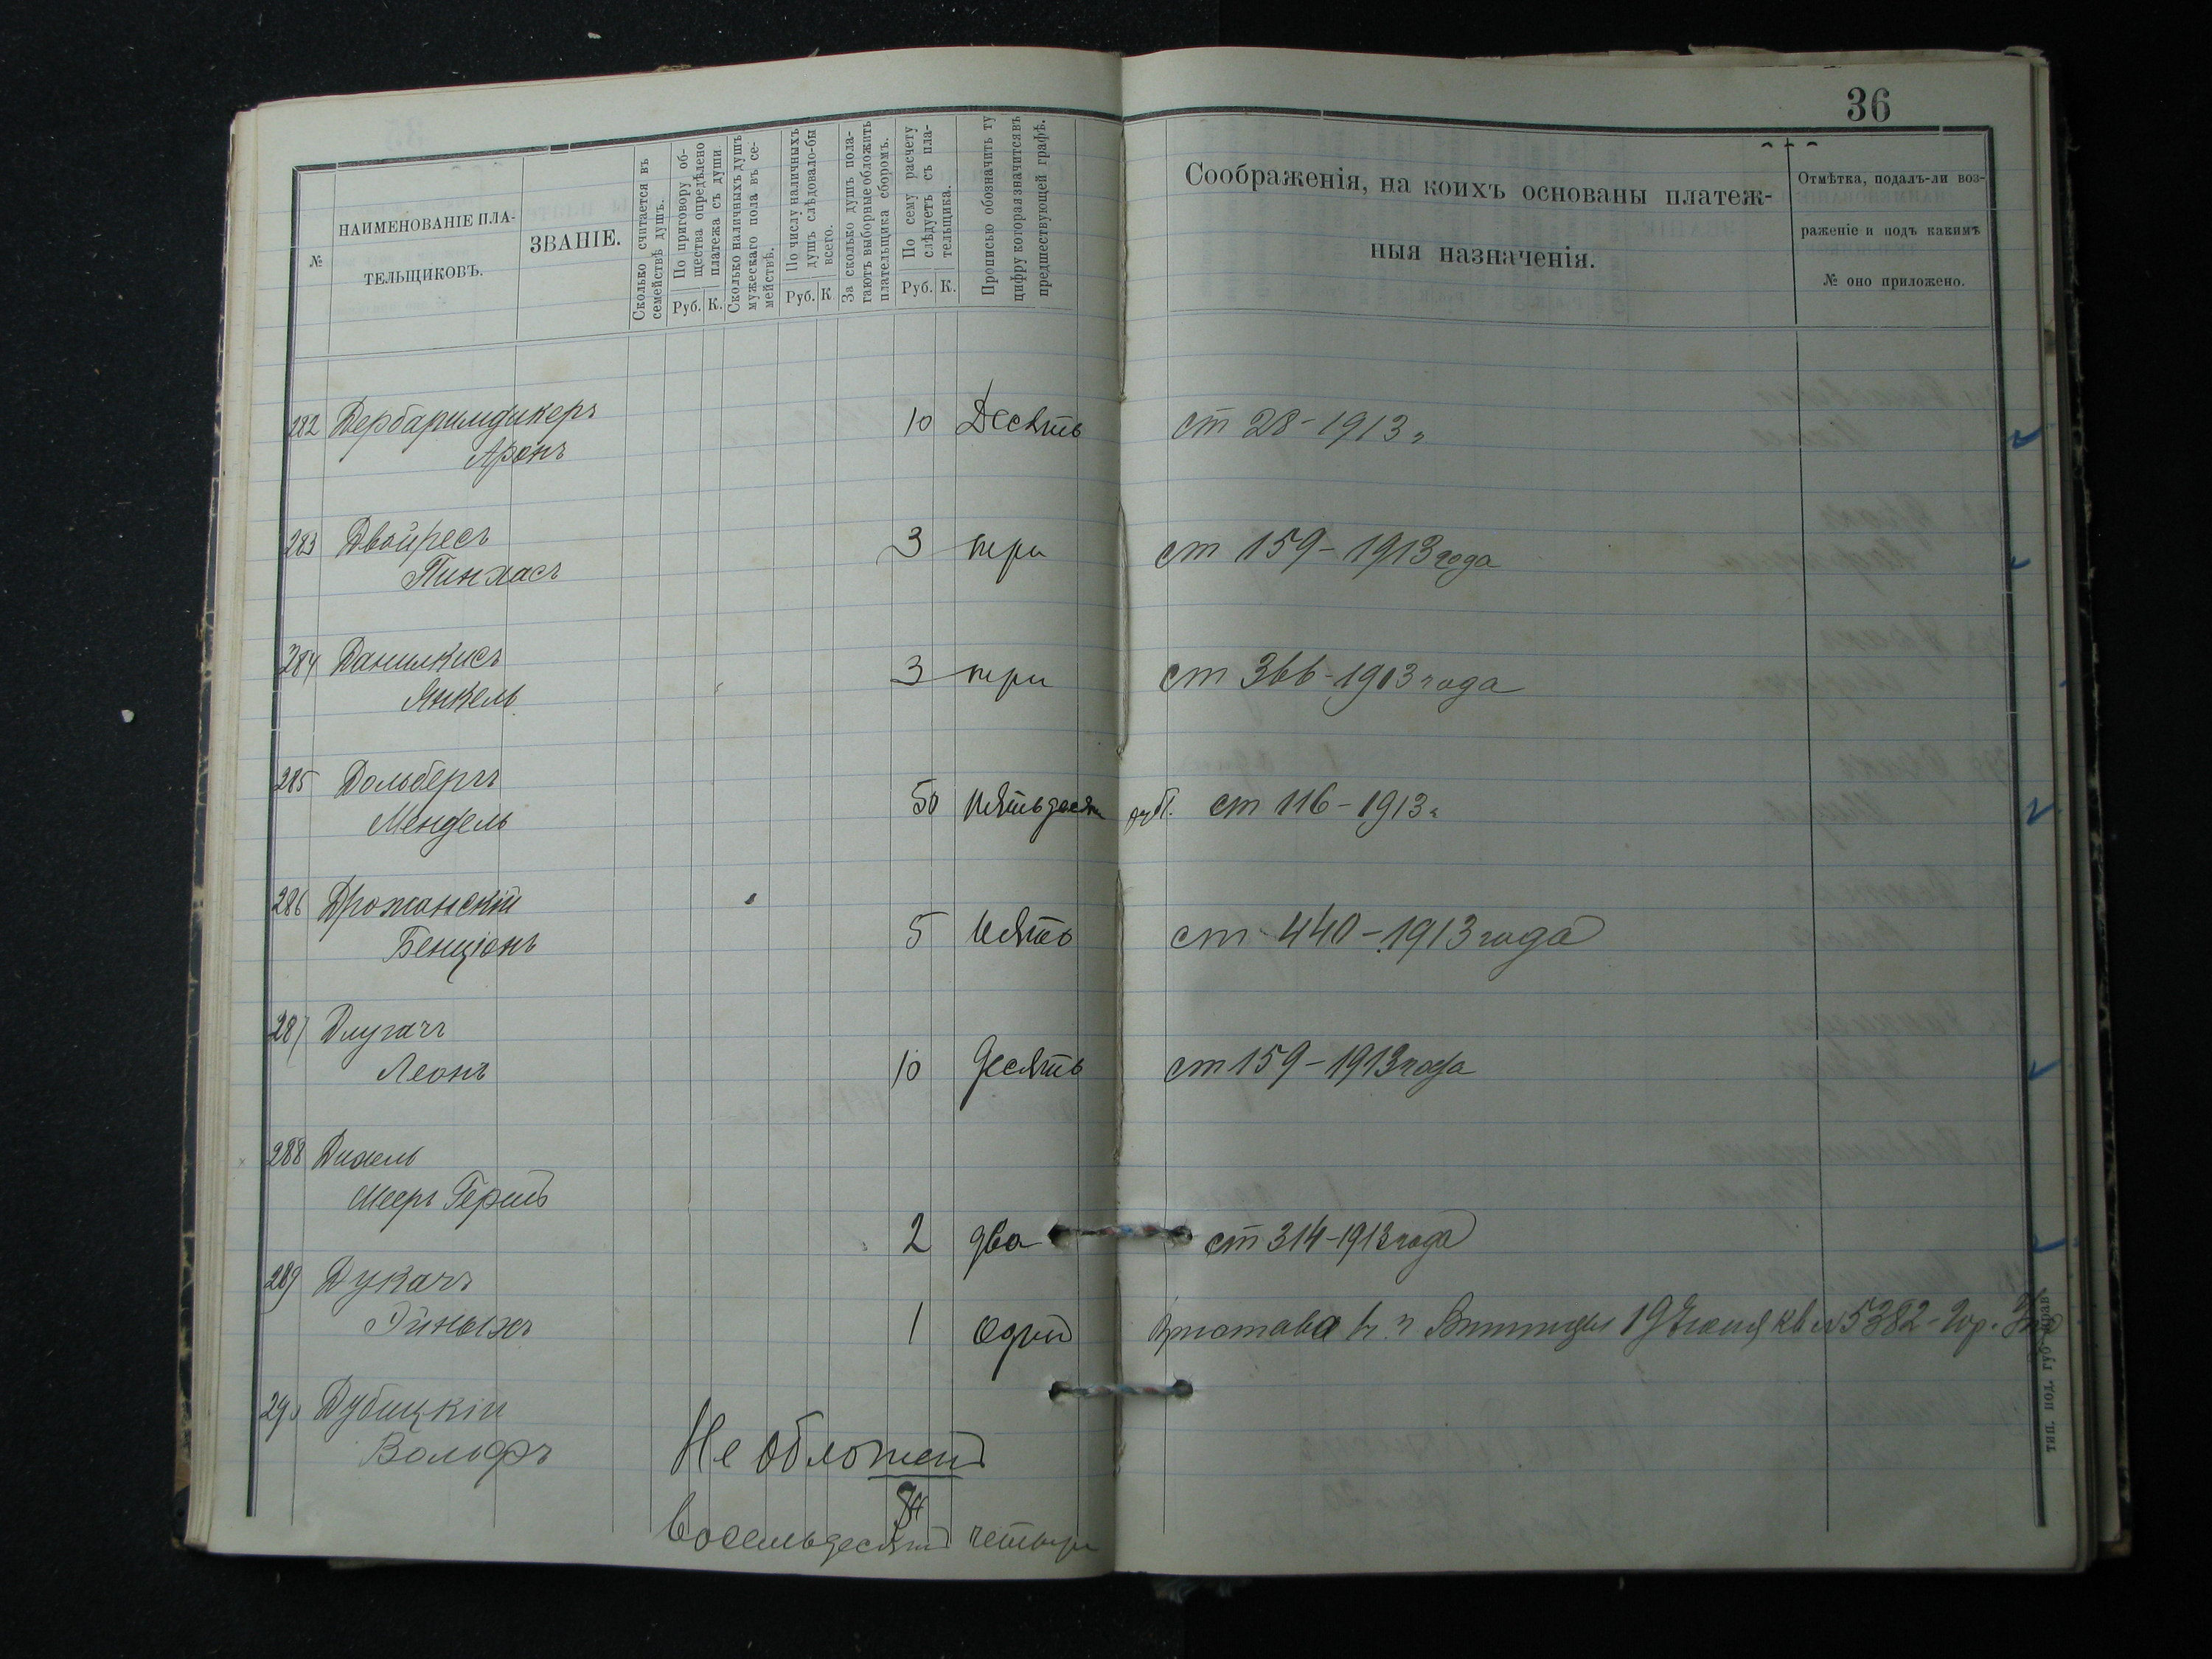 36
№
НАИМЕНОВАНІЕ ПЛА-
ТЕЛЬЩИКОВЪ.
ЗВАНІЕ.
Сколько считается въ
семействѣ душъ.
По приговору об-
щества опредѣлено
платежа съ души.
Руб. К.
Сколько наличныхъ душъ
мужескаго пола въ се-
мействѣ.
По числу наличныхъ
душъ слѣдовало-бы
всего.
Руб. К
За сколько душъ пола-
гаютъ выборные обложить
плательщика сборомъ.
По сему расчету
слѣдуетъ съ пла-
тельщика.
Руб. К.
Прописью обозначить ту
цифру которая значится въ
предшествующей графѣ.
Соображенія, на коихъ основаны платеж-
ныя назначенія.
Отмѣтка, подалъ-ли воз-
раженіе и подъ какимъ
№ оно приложено.
282 Дербаримдикеръ
Аронъ
10 Десять ст 28-1913 г
283 Двойресъ
Пинхасъ
3 три ст 159-1913 года
284 Данилкисъ
Янкель
3 три ст 366-1913 года
285 Дольбергъ
Мендель
50 Пятьдесят руб. ст 116-1913 г
286 Дрожанскій
Бенціонъ
5 Пять ст 440-1913 года
287 Длугачъ
Леонъ
10 Десять ст 159-1913 года
288 Дихель
Мееръ Гершъ
2 два ст 314-1913 года
289 Дукачъ
Эйныхъ
1 Один Пристава г. Винницы 19 кв № 5382
290 Дубицкій
Вольфъ
Не обложен
84
Восемьдесят четыре
тип. под. губ. прав.